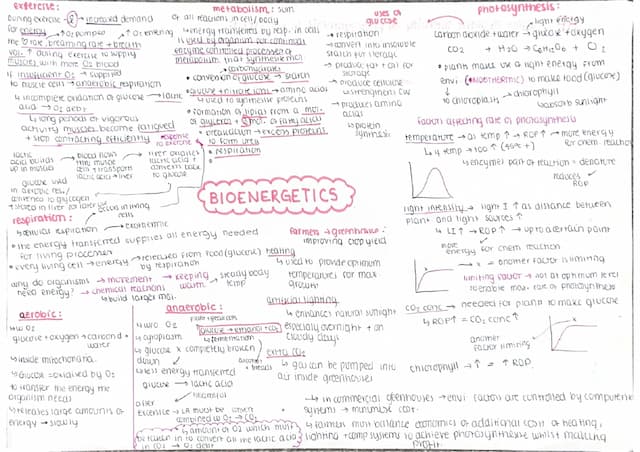 exercise:
During exercise ↑ increased demand
for energy ↑ O₂ pumped ↑ O₂ entering
the ↑ rate, breathing rate + breath
vol. ↑ during exercise to supply
muscles with more O₂ blood
if insufficient O₂ → supplied
to muscle cells → anaerobic respiration
↳ incomplete oxidation of glucose → lactic
acid → O₂ debt
↳ long periods of vigorous
activity muscles become fatigued
↳ stop contracting efficiently
response to exercise
lactic acid builds up in muscles
blood flows thru muscle and transports lactic acid → liver
liver oxidises lactic acid + converts back to glucose
glucose used
converted to glycogen
↳ stored in liver
metabolism: sum
of all reactions in cell/body
↳ energy transferred by resp. in cells
is used by organism for continual
enzyme controlled processes of
metabolism that synthesise mol
↳ carbohydrates
• conversion of glucose → starch
• glucose + nitrate ions → amino acids
↳ used to synthesise proteins
• formation of lipids from a mol.
of glycerol + 3 mol. of fatty acids
• breakdown → excess proteins
to form urea
• respiration
uses of
glucose
• respiration
• convert into insoluble
starch for storage
• produce fat + oil for
storage
• produce cellulose
↳ strengthen CW
• produces amino
acids
↳ protein
synthesis
photosynthesis:
light energy
carbon dioxide + water → glucose + oxygen
CO₂ + H₂O → C₆H₁₂O₆ + O₂
• plants make use of light energy from
envi (ENDOTHERMIC) to make food (glucose)
↳ chloroplasts → chlorophyll
↳ absorb sunlight
factors affecting rate of photosynthesis
temperature → as temp ↑ → ROP ↑ → more energy
for chem reaction
↳ if temp → too ↑ (45°+)
↳ enzymes part of reaction → denature
reduces ROP
light intensity → light I ↑ as distance between
plant and light sources ↑
↳ LI ↑ → ROP ↑ → up to a certain point
more energy for chem reaction
x = another factor is limiting
limiting factor → not at optimum level
to enable max. rate of photosynthesis
CO₂ conc → needed for plants to make glucose
↳ ROP↑ = CO₂ conc ↑
another
factor limiting
chlorophyll → ↑ = ↑ ROP
BIOENERGETICS
respiration:
occurs in living cells
↳ cellular respiration → exothermic
• the energy transferred supplies all energy needed
for living processes
• every living cell → energy → released from food (glucose)
by respiration
why do organisms → movement → keeping warm → steady body temp
need energy? → chemical reactions
↳ build larger mol.
farmers → greenhouse:
improving crop yield
heating
↳ used to provide optimum
temperatures for max
growth
artificial lighting
↳ enhances natural sunlight
especially overnight + on
cloudy days
extra CO₂
↳ gas can be pumped into
air inside greenhouses
↳ in commercial greenhouses → envi factors are controlled by computer
systems → minimise cost
↳ farmers must balance economics of additional cost of heating,
lighting + comp systems to achieve photosynthesis whilst making
profit
aerobic:
↳ w O₂
glucose + oxygen → carbon d +
water
↳ inside mitochondria
↳ glucose = oxidised by O₂
to transfer the energy the
organism needs
↳ releases large amounts of
energy → slowly
anaerobic:
↳ w/o O₂
↳ cytoplasm
↳ glucose x completely broken
down
↳ less energy transferred
glucose → lactic acid
↳ harmful
after
exercise → LA must be
combined w O₂ → CO₂
↳ amount of O₂ which must
be taken in to convert all the lactic acid
in CO₂ → O₂ debt
glucose → ethanol + CO₂
↳ fermentation